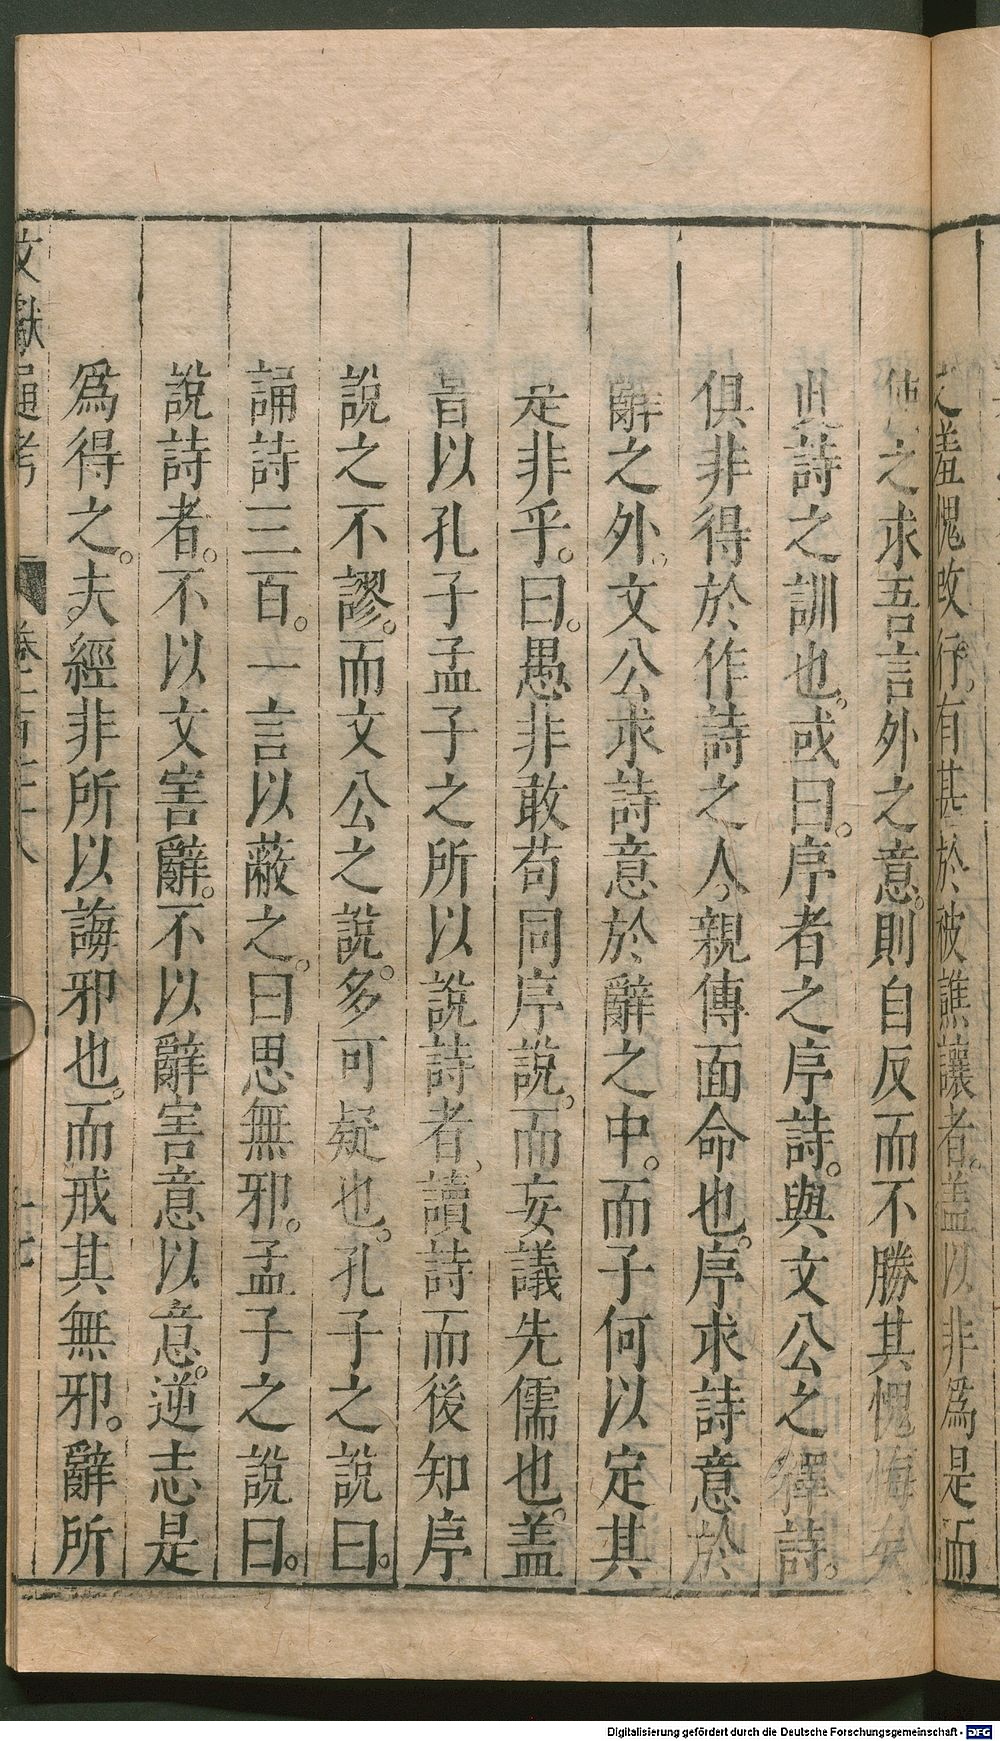 之羞愧改行。有甚於被譙讓者。盖以非爲是而
使之求吾言外之意。則自反而不勝其愧悔矣
此詩之訓也。或曰。序者之序詩。與文公之釋詩。
俱非得於作詩之人。親傳面命也。序求詩意於
辭之外。文公求詩意於辭之中。而子何以定其
是非乎。曰。愚非敢苟同序說。而妄議先儒也。盖
甞以孔子孟子之所以說詩者。讀詩而後知序
說之不謬。而文公之說。多可疑也。孔子之說曰。
誦詩三百。一言以蔽之。曰思無邪。孟子之說曰。
說詩者。不以文害辭。不以辭害意以意。逆志是
爲得之。夫經非所以誨邪也。而戒其無邪。辭所
文獻通考 卷一百七十八 十七
Digitalisierung gefördert durch die Deutsche Forschungsgemeinschaft - DFG